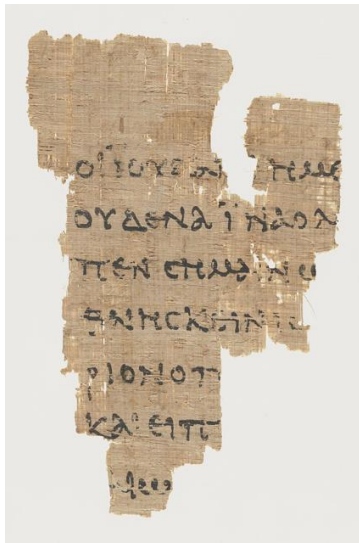 ΟΙΙΟΥΔΑΙ ΗΜΕ
ΟΥΔΕΝΑΪΝΑΟΛ
ΠΕΝCΗΜΑΙΝΩ
ΘΝΗCΚΕΙΝΙ
ΡΙΟΝΟΠ
ΚΑΙΕΙΠ
ΑΙω